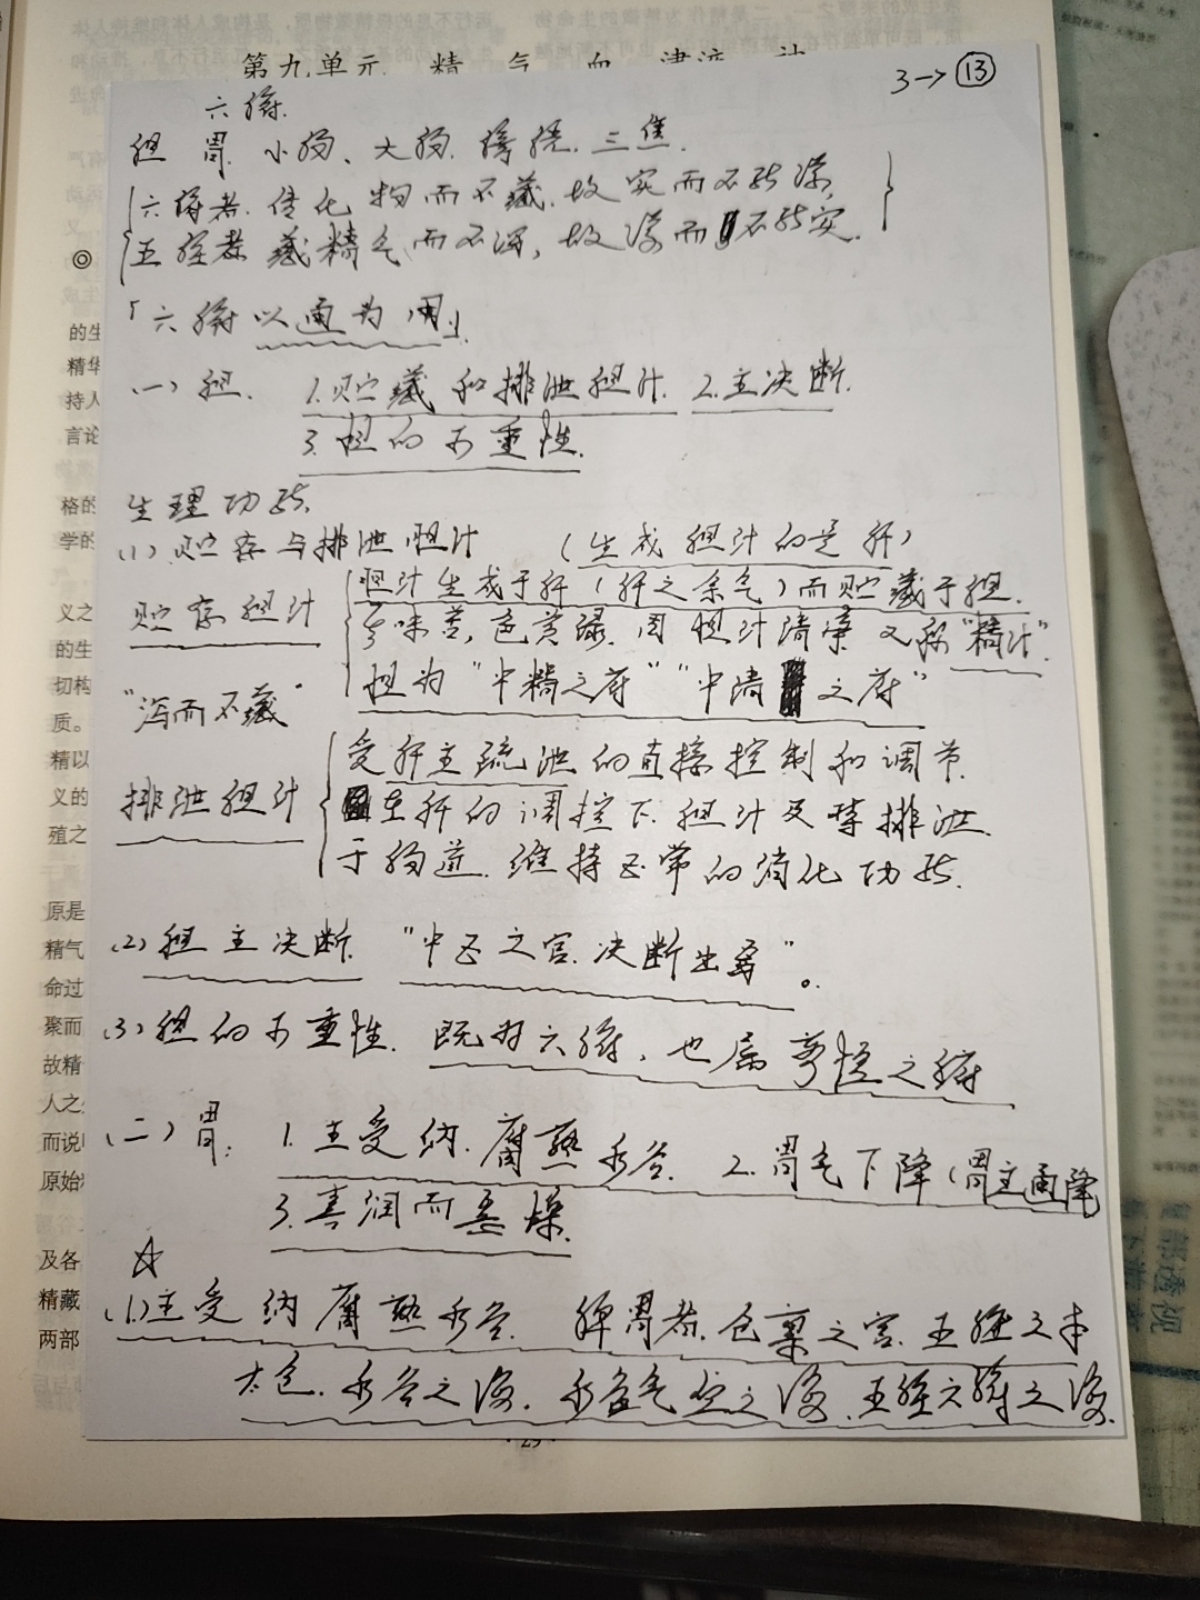 第九单元 精 气 血 津液
3→⑬
六腑.
胆 胃. 小肠、大肠. 膀胱. 三焦.
六腑者. 传化 物而不藏. 故实而不能满,
五脏者 藏精气而不泻, 故满而不能实.
「六腑以通为用」.
(一) 胆. 1.贮藏和排泄胆汁. 2.主决断.
3.胆的重要性.
生理功能.
(1) 贮存与排泄胆汁 (生成胆汁的是肝)
贮存胆汁
胆汁生成于肝(肝之余气)而贮藏于胆.
味苦, 色黄绿. 因胆汁清 又称"精汁".
胆为"中精之府" "中清之府"
"泻而不藏"
排泄胆汁
受肝主疏泄的直接控制和调节.
在肝的调控下. 胆汁及时排泄
于肠道. 维持正常的消化功能.
(2) 胆主决断. "中正之官. 决断出焉"。
(3) 胆的重要性. 既为六腑, 也属奇恒之腑
(二) 胃: 1.主受纳. 腐熟水谷. 2.胃气下降(胃主通降
3.喜润而恶燥.
☆
(1)主受纳腐熟水谷. 脾胃者. 仓廪之官. 五脏之本
太仓. 水谷之海. 水谷气血之海. 五脏六腑之海.
◎
的生
精华
持人
言论
格的
学的
义之
的生
切构
质。
精以
义的
殖之
原是
精气
命过
聚而
故精
人之
而说
原始
及各
精藏
两部